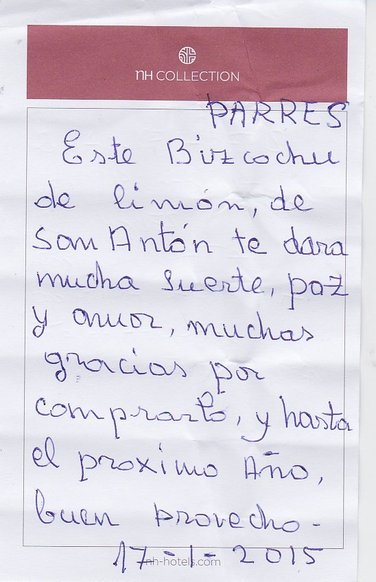 nH COLLECTION
PARRES
Este Bizcochu
de limón, de
San Antón te dara
mucha suerte, paz
y amor, muchas
gracias por
comprarlo, y hasta
el proximo Año,
buen provecho-
17-1-2015
nh-hotels.com